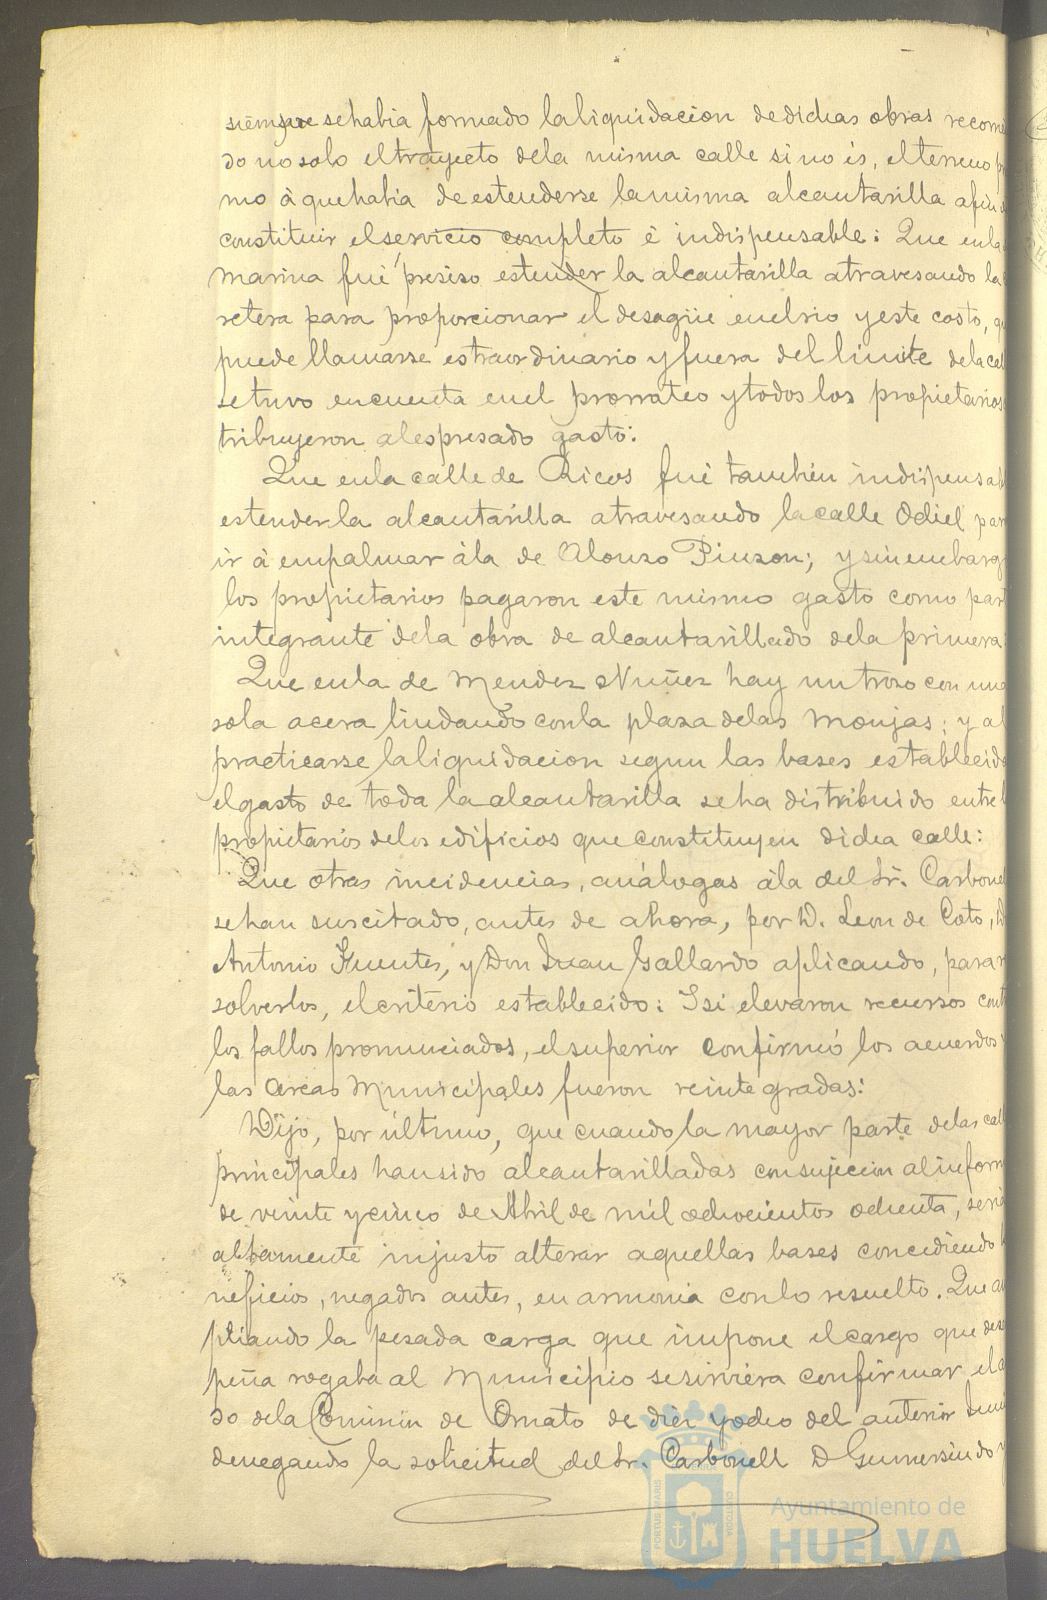 siempre se habia formado la liquidacion de dichas obras recorrien
do no solo el trayecto de la misma calle si no és, el terreno
mo á que habia de estenderse la misma alcantarilla afin
constituir el servicio completo é indispensable: Que en la
marina fué preciso estender la alcantarilla atravesando la
retera para proporcionar el desagüe en el rio y este costo, qu
puede llamarse estraordinario y fuera del limite de la cal
se tuvo en cuenta en el prorrateo y todos los propietarios
tribuyeron al espresado gasto:
Que en la calle de Ricos fué tambien indispensab
estender la alcantarilla atravesando la calle Odiel par
ir á empalmar á la de Alonso Pinzon; y sin embarg
los propietarios pagaron este mismo gasto como par
integrante de la obra de alcantarillado de la primera
Que en la de Mendez Nuñez hay un trozo con una
sola acera lindando con la plaza de las Monjas; y al
practicarse la liquidacion segun las bases establecida
el gasto de toda la alcantarilla se ha distribuido entre
propietarios de los edificios que constituyen dicha calle:
Que otras incidencias, análogas á la del Sr. Carbonel
se han suscitado, antes de ahora, por D. Leon de Coto, D
Antonio Fuentes, y Don Juan Gallardo aplicando, para
solverlos, el criterio establecido: Y si elevaron recursos cont
los fallos pronunciados, el superior confirmó los acuerdos
las arcas Municipales fueron reintegradas:
Dijo, por último, que cuando la mayor parte de las call
principales han sido alcantarilladas con sujecion al inform
de veinte y cinco de Abril de mil ochocientos ochenta, seri
altamente injusto alterar aquellas bases concediendo
neficios, negados antes, en armonia con lo resuelto. Que
pliando la pesada carga que impone el cargo que des
peña rogaba al Municipio se sirviera confirmar el
do de la Comision de Ornato de diez y ocho del anterior
denegando la solicitud del Sr. Carbonell D Gumersindo
PORTUS MARIS
CUSTODIA
Ayuntamiento de
HUELVA